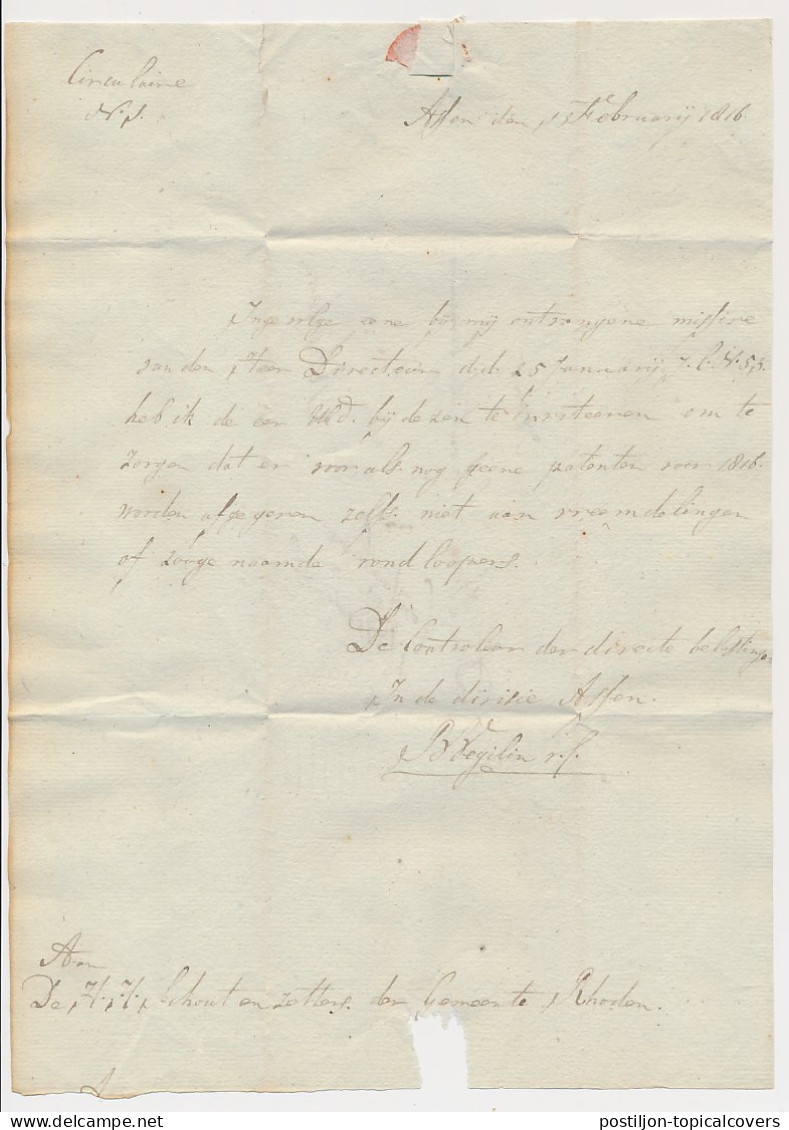 Circulaire
Assen den Februarij 1816.
Ingevolge eene bij mij ontvangene missive
van den Heer Directeur d.d. 25 Januarij j.l. N. 53
heb ik de eer UEd. bij dezen te inviteeren om te
zorgen dat er voor als nog geene patenten voor 1816.
worden afgegeven zelfs niet aan vreemdelingen
of zooge naamde rondloopers.
De Controleur der directe belastingen
In de divisie Assen.
Wegilin
Aan
De H. H. Schout en zetters der Gemeente Rhoden.
postiljon-topicalcovers